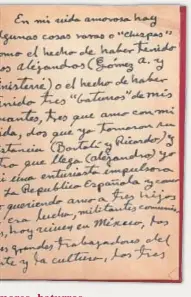 En mi vida amorosa hay
algunas cosas raras o "chuscas"
como el hecho de haber tenido
dos Alejandros (Gómez A. y
Finisterre) o el hecho de haber
tenido tres "baturros" de mis
amantes, tres que amo con mi
vida, dos que ya tomaron su
distancia (Bartolí y Ricardo) y
otro que llega (Alejandro) yo
fui una entusiasta impulsora
La República Española y
queriendo amar a tres hijos
era lucha, militantes comunis
hoy viven en México, los
es grandes trabajadores del
te y la cultura, los tres